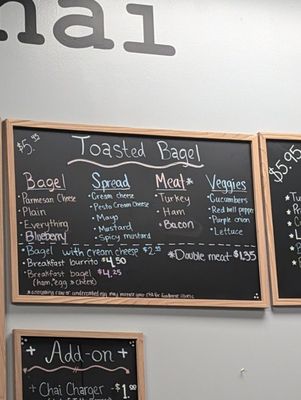 nai
$5.95
Toasted Bagel
Bagel
Parmesan Cheese
Plain
Everything
Blueberry
Spread
Cream cheese
Pesto Cream Cheese
Mayo
Mustard
Spicy mustard
Meat*
Turkey
Ham
Bacon
Veggies
Cucumbers
Red bell pepper
Purple onion
Lettuce
Bagel with cream cheese
Breakfast burrito $4.50
Breakfast bagel $4.25
(ham, egg & cheese)
*Double meat $1.35
$5.95
Add-on
+ Chai Charger